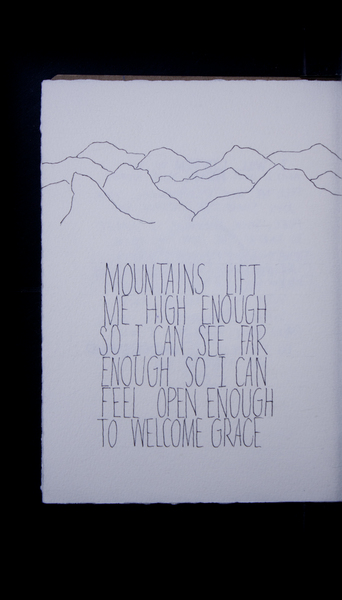 MOUNTAINS LIFT
ME HIGH ENOUGH
SO I CAN SEE FAR
ENOUGH SO I CAN
FEEL OPEN ENOUGH
TO WELCOME GRACE